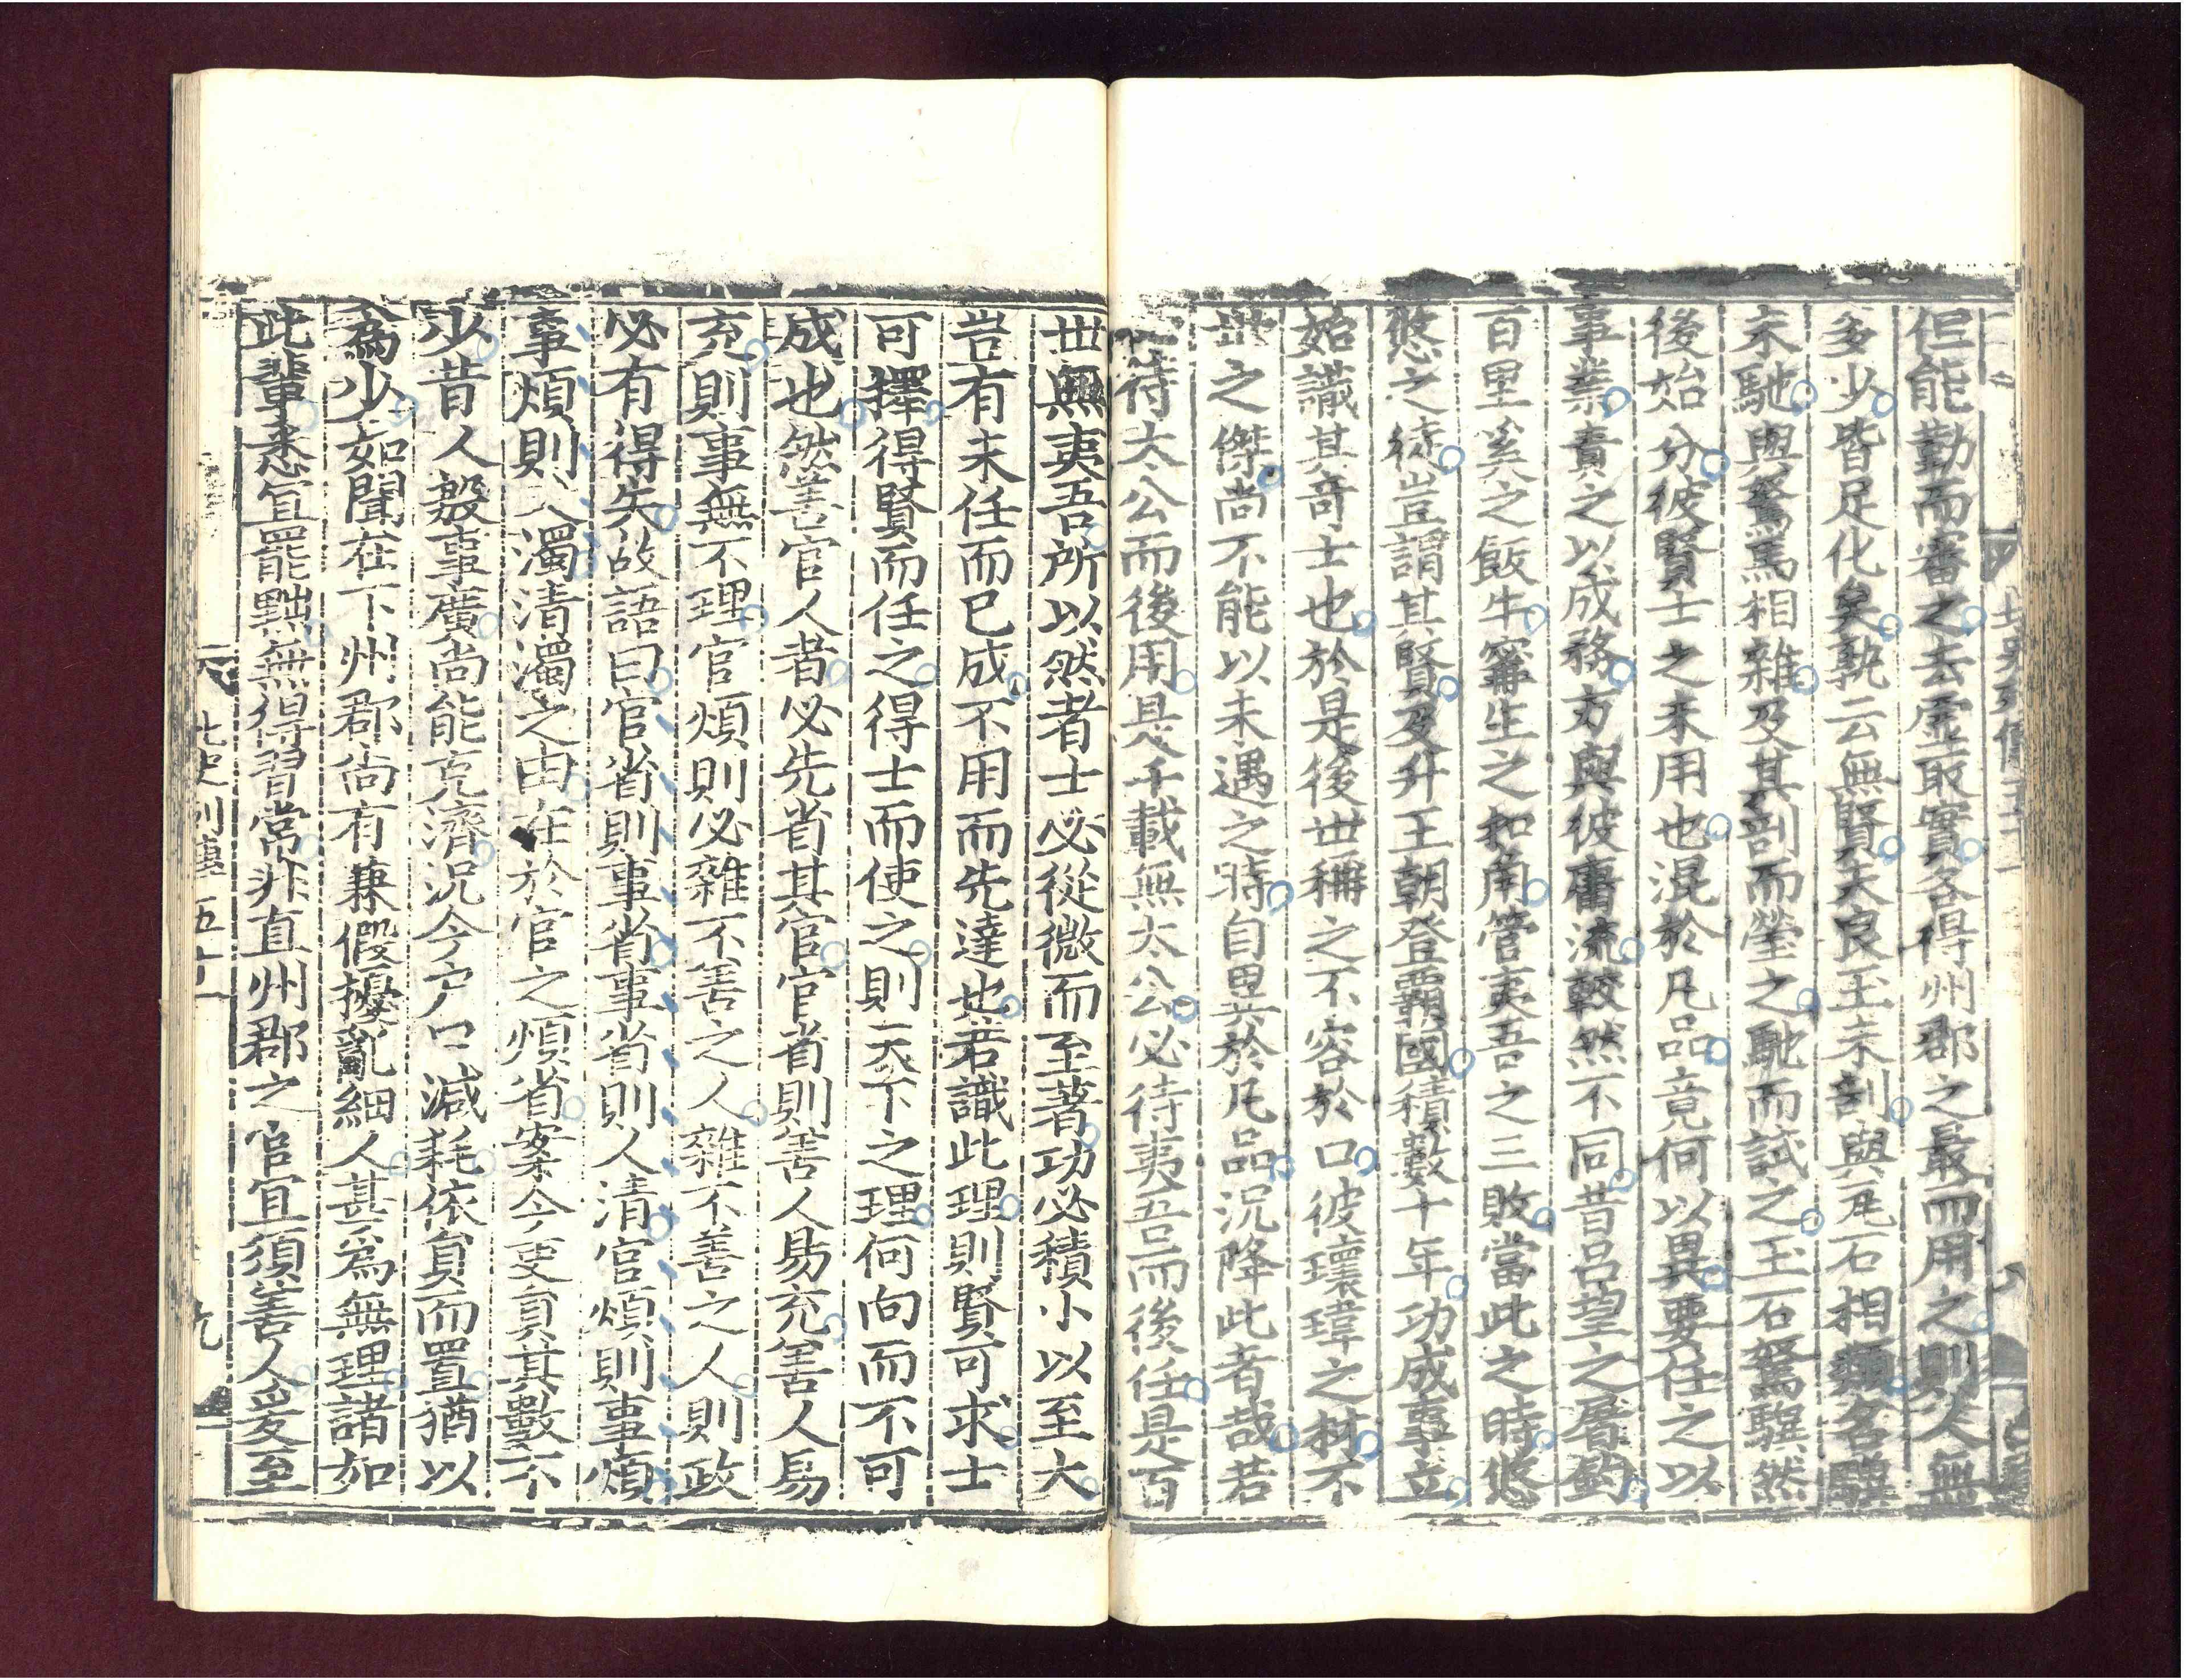 但能勤而審之去虛取實各得州郡之最而用之則人無
多少皆足化矣孰云無賢夫良玉未剖與瓦石相類名驥
未馳與駑馬相雜及其剖而瑩之馳而試之玉石駑驥然
後始分彼賢士之未用也混於凡品竟何以異要任之以
事業責之以成務方與彼庸流較然不同昔呂望之屠釣
百里奚之飯牛甯生之扣角管夷吾之三敗當此之時悠
悠之徒豈謂其賢及升王朝登霸國積數十年功成事立
始識其奇士也於是後世稱之不容於口彼瓌瑋之材不
世之傑尚不能以未遇之時自異於凡品況降此者哉若
待太公而後用是千載無太公必待夷吾而後任是百
世無夷吾所以然者士必從微而至著功必積小以至大
豈有未任而已成不用而先達也若識此理則賢可求士
可擇得賢而任之得士而使之則天下之理何向而不可
成也然善官人者必先省其官官省則善人易充善人易
充則事無不理官煩則必雜不善之人雜不善之人則政
必有得失故語曰官省則事省事省則人清官煩則事煩
事煩則人濁清濁之由在於官之煩省案今吏員其數不
少昔人殷事廣尚能克濟況今戶口減耗依員而置猶以
為少如聞在下州郡尚有兼假擾亂細人甚為無理諸如
此輩悉宜罷黜無得習常非直州郡之官宜須善人爰至
北史列傳五十一
九